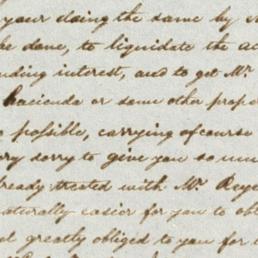 your doing the same by
be done, to liquidate the ac
nding interest, and to get Mr.
hacienda or some other prope
possible, carrying of course
ry sorry to give you so mu
ready treated with Mr. Reye
naturally easier for you to ob
greatly obliged to you for